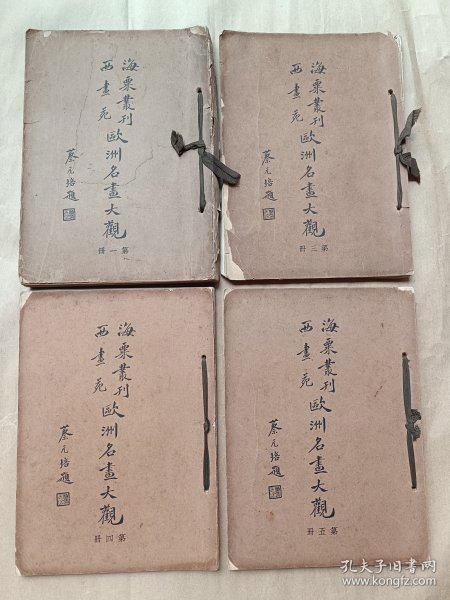 海粟叢刊
西畫苑
歐洲名畫大觀
蔡元培題
第一冊
海粟叢刊
西畫苑
歐洲名畫大觀
蔡元培題
第三冊
海粟叢刊
西畫苑
歐洲名畫大觀
蔡元培題
第四冊
海粟叢刊
西畫苑
歐洲名畫大觀
蔡元培題
第五冊
孔夫子旧书网
www.kongfz.com